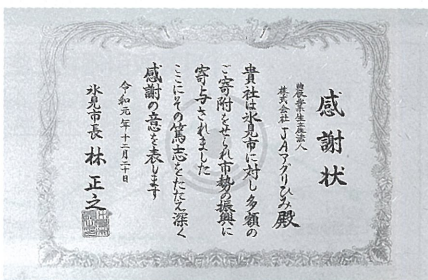 感謝状
農業生産法人
株式会社 JAアグリひみ 殿
貴社は氷見市に対し多額の
ご寄附をせられ市勢の振興に
寄与されました
ここにその篤志をたたえ深く
感謝の意を表します
令和元年十二月二十日
氷見市長 林 正之